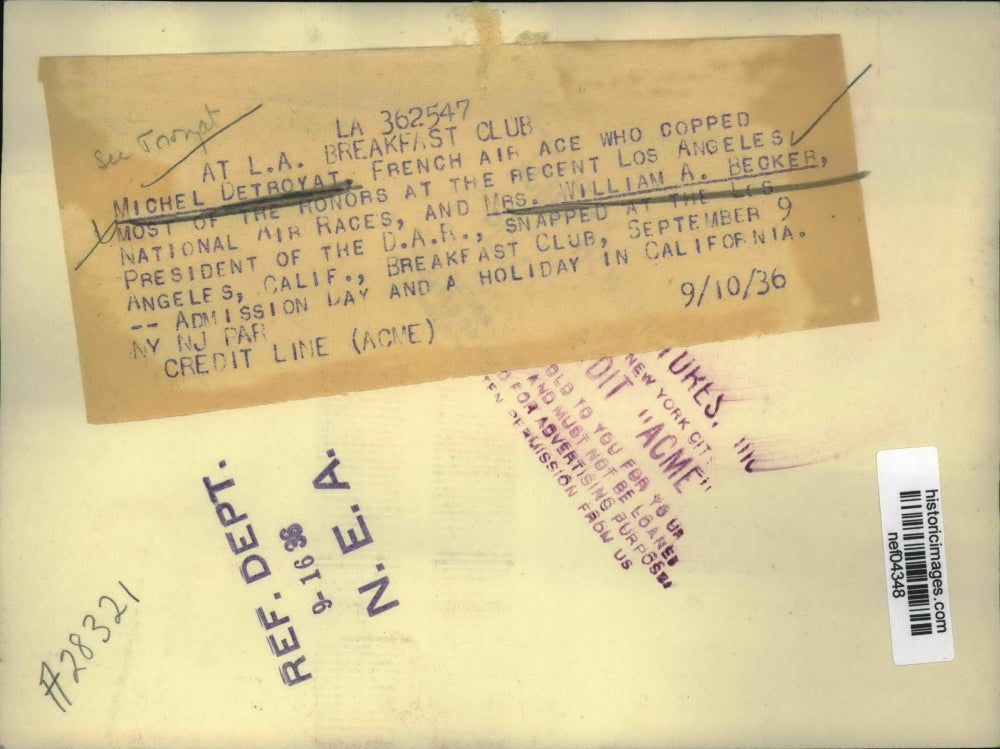 See
LA 362547
AT L.A. BREAKFAST CLUB
MICHEL DETROYAT, FRENCH AIR ACE WHO COPPED
MOST OF THE HONORS AT THE RECENT LOS ANGELES
NATIONAL AIR RACES, AND MRS. WILLIAM A. BECKER,
PRESIDENT OF THE D.A.R., SNAPPED AT THE LOS
ANGELES, CALIF., BREAKFAST CLUB, SEPTEMBER 9
-- ADMISSION DAY AND A HOLIDAY IN CALIFORNIA.
NY NJ PAR
CREDIT LINE (ACME) 9/10/36
TURES, INC
NEW YORK CITY
DIT "ACME"
OLD TO YOU FOR YOUR
AND MUST NOT BE LOANED
D FOR ADVERTISING PURPOSES
TEN PERMISSION FROM US
REF. DEPT.
9-16 36
N. E. A.
#28321
historicimages.com
nef04348